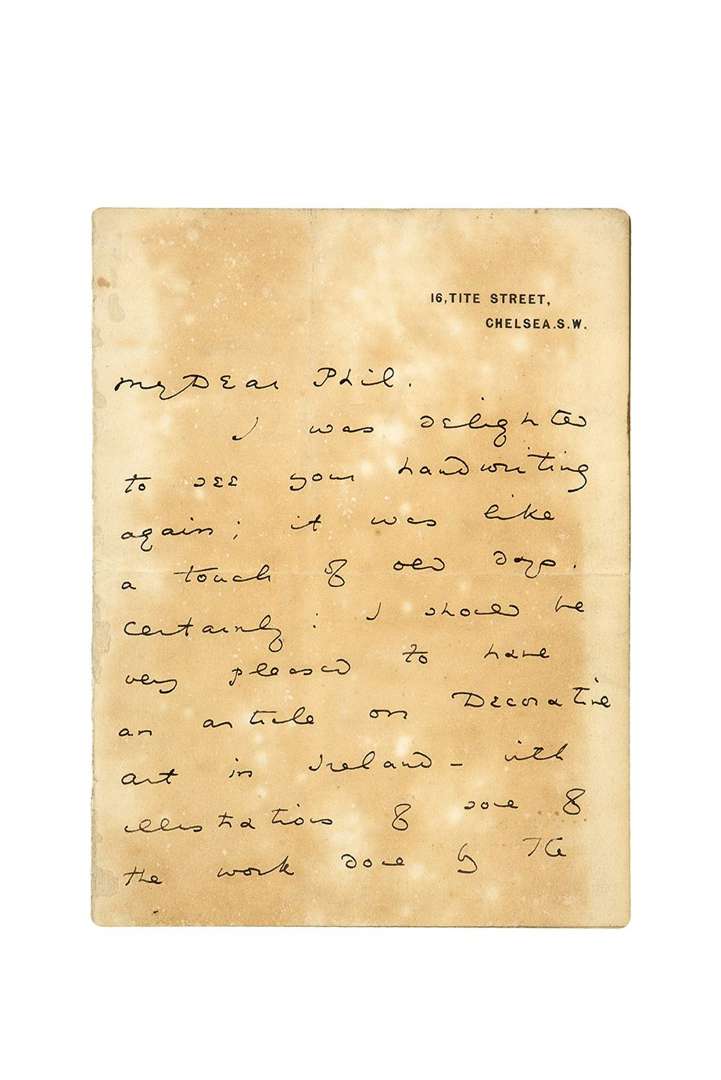 16, TITE STREET,
CHELSEA. S.W.
My Dear Phil.
I was delighted
to see your handwriting
again; it was like
a touch of old days.
Certainly: I should be
very pleased to have
an article on Decorative
art in Ireland – with
illustrations of some of
the work done by the